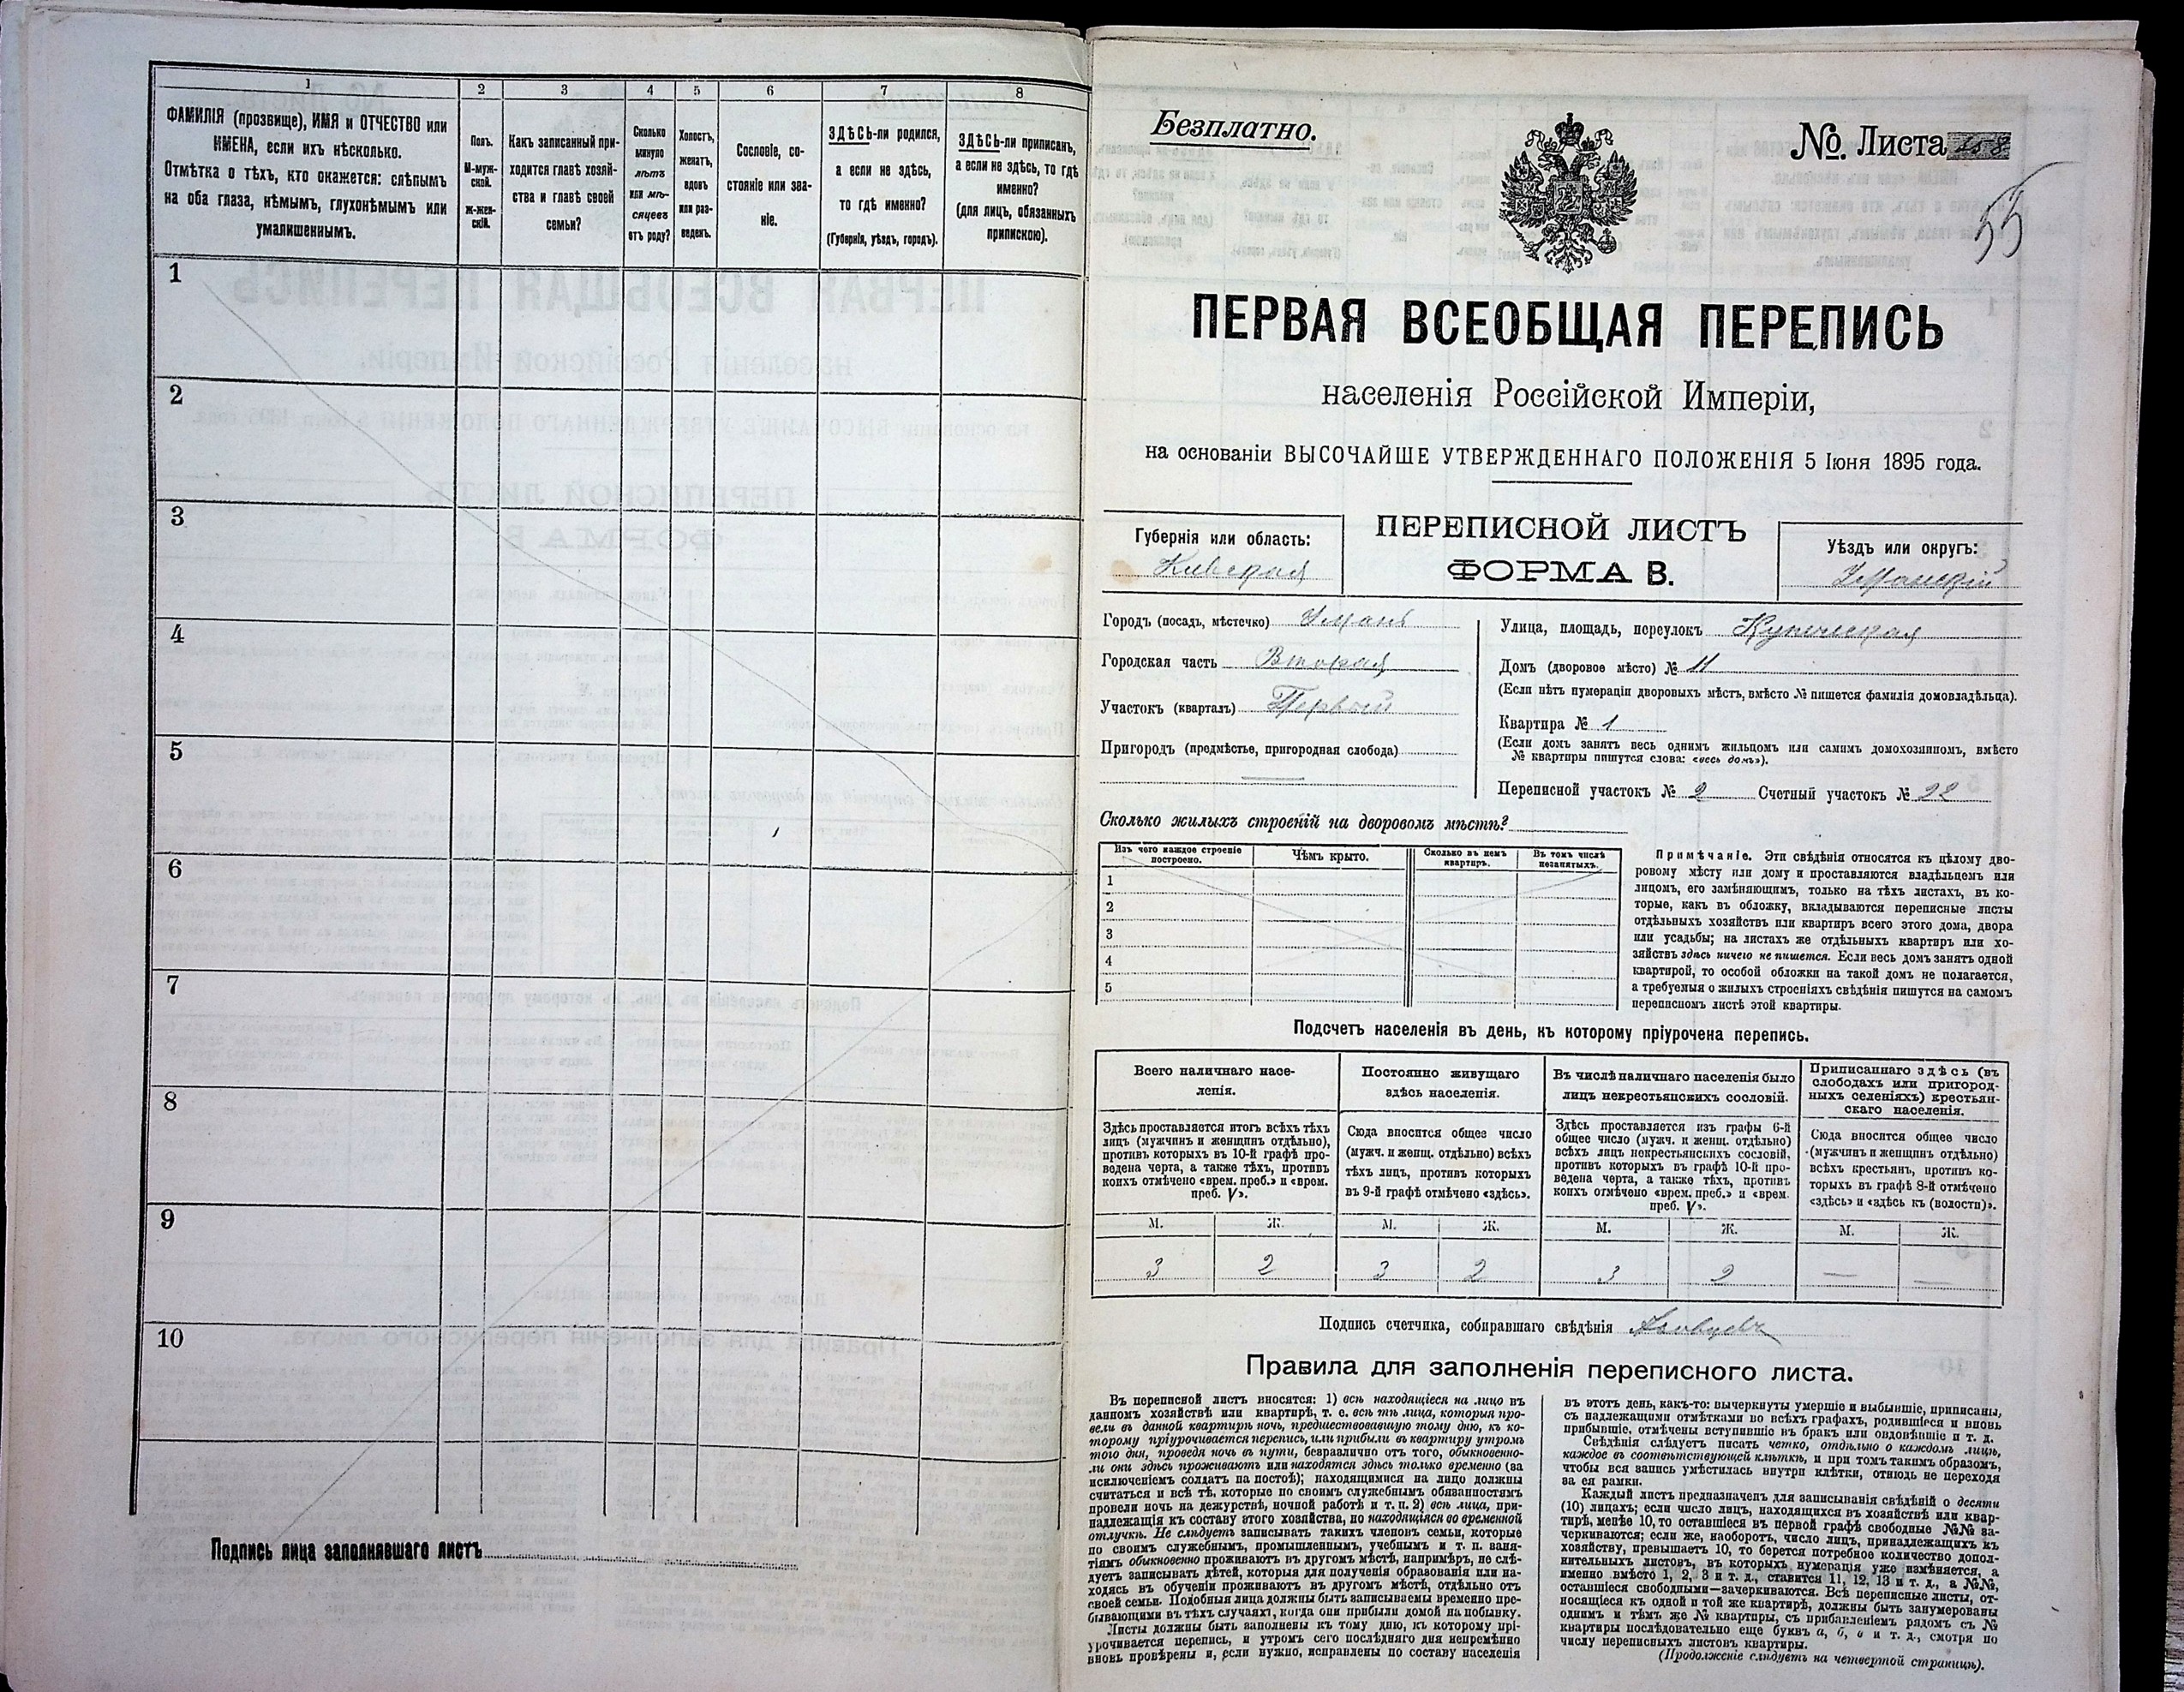 1
2
3
4
5
6
7
8
ФАМИЛІЯ (прозвище), ИМЯ и ОТЧЕСТВО или
ИМЕНА, если ихъ нѣсколько.
Отмѣтка о тѣхъ, кто окажется: слѣпымъ
на оба глаза, нѣмымъ, глухонѣмымъ или
умалишеннымъ.
Полъ.
М-муж-
ской.
Ж-жен-
скій.
Какъ записанный при-
ходится главѣ хозяй-
ства и главѣ своей
семьи?
Сколько
минуло
лѣтъ
или мѣ-
сяцевъ
отъ роду?
Холостъ,
женатъ,
вдовъ
или раз-
веденъ.
Сословіе, со-
стояніе или зва-
ніе.
ЗДѢСЬ-ли родился,
а если не здѣсь,
то гдѣ именно?
(Губернія, уѣздъ, городъ).
ЗДѢСЬ-ли приписанъ,
а если не здѣсь, то гдѣ
именно?
(для лицъ, обязанныхъ
припискою).
1
2
3
4
5
6
7
8
9
10
Подпись лица заполнявшаго листъ
Безплатно.
№ Листа
55
ПЕРВАЯ ВСЕОБЩАЯ ПЕРЕПИСЬ
населенія Россійской Имперіи,
на основаніи ВЫСОЧАЙШЕ УТВЕРЖДЕННАГО ПОЛОЖЕНІЯ 5 Іюня 1895 года.
Губернія или область:
Кіевская
ПЕРЕПИСНОЙ ЛИСТЪ
ФОРМА В.
Уѣздъ или округъ:
Уманскій
Городъ (посадъ, мѣстечко) Умань
Городская часть Вторая
Участокъ (кварталъ) Первый
Пригородъ (предмѣстье, пригородная слобода)
Улица, площадь, переулокъ Купеческая
Домъ (дворовое мѣсто) № 11
(Если нѣтъ нумераціи дворовыхъ мѣстъ, вмѣсто № пишется фамилія домовладѣльца).
Квартира № 1
(Если домъ занятъ весь однимъ жильцомъ или самимъ домохозяиномъ, вмѣсто
№ квартиры пишутся слова: «весь домъ»).
Переписной участокъ № 2 Счетный участокъ № 22
Сколько жилыхъ строеній на дворовомъ мѣстѣ?
Изъ чего каждое строеніе
построено.
Чѣмъ крыто.
Сколько въ немъ
квартиръ.
Въ томъ числѣ
незанятыхъ.
1
2
3
4
5
Примѣчаніе. Эти свѣдѣнія относятся къ цѣлому дво-
ровому мѣсту или дому и проставляются владѣльцемъ или
лицомъ, его замѣняющимъ, только на тѣхъ листахъ, въ ко-
торые, какъ въ обложку, вкладываются переписные листы
отдѣльныхъ хозяйствъ или квартиръ всего этого дома, двора
или усадьбы; на листахъ же отдѣльныхъ квартиръ или хо-
зяйствъ здѣсь ничего не пишется. Если весь домъ занятъ одной
квартирой, то особой обложки на такой домъ не полагается,
а требуемыя о жилыхъ строеніяхъ свѣдѣнія пишутся на самомъ
переписномъ листѣ этой квартиры.
Подсчетъ населенія въ день, къ которому пріурочена перепись.
Всего наличнаго насе-
ленія.
Здѣсь проставляется итогъ всѣхъ тѣхъ
лицъ (мужчинъ и женщинъ отдѣльно),
противъ которыхъ въ 10-й графѣ про-
ведена черта, а также тѣхъ, противъ
коихъ отмѣчено «врем. преб.» и «врем.
преб. V».
Постоянно живущаго
здѣсь населенія.
Сюда вносится общее число
(мужч. и женщ. отдѣльно) всѣхъ
тѣхъ лицъ, противъ которыхъ
въ 9-й графѣ отмѣчено «здѣсь».
Въ числѣ наличнаго населенія было
лицъ некрестьянскихъ сословій.
Здѣсь проставляется изъ графы 6-й
общее число (мужч. и женщ. отдѣльно)
всѣхъ лицъ некрестьянскихъ сословій,
противъ которыхъ въ графѣ 10-й про-
ведена черта, а также тѣхъ, противъ
коихъ отмѣчено «врем. преб.» и «врем.
преб. V».
Приписаннаго здѣсь (въ
слободахъ или пригород-
ныхъ селеніяхъ) крестьян-
скаго населенія.
Сюда вносится общее число
(мужчинъ и женщинъ отдѣльно)
всѣхъ крестьянъ, противъ ко-
торыхъ въ графѣ 8-й отмѣчено
«здѣсь» и «здѣсь къ (волости)».
М. Ж. М. Ж. М. Ж. М. Ж.
3 2 3 2 3 2 — —
Подпись счетчика, собиравшаго свѣдѣнія
Правила для заполненія переписного листа.
Въ переписной листъ вносятся: 1) всѣ находящіеся на лицо въ
данномъ хозяйствѣ или квартирѣ, т. е. всѣ тѣ лица, которыя про-
вели въ данной квартирѣ ночь, предшествовавшую тому дню, къ ко-
торому пріурочивается перепись, или прибыли въ квартиру утромъ
того дня, проведя ночь въ пути, безразлично отъ того, обыкновенно-
ли они здѣсь проживаютъ или находятся здѣсь только временно (за
исключеніемъ солдатъ на постоѣ); находящимися на лицо должны
считаться и всѣ тѣ, которые по своимъ служебнымъ обязанностямъ
провели ночь на дежурствѣ, ночной работѣ и т. п. 2) всѣ лица, при-
надлежащія къ составу этого хозяйства, но находящіяся во временной
отлучкѣ. Не слѣдуетъ записывать такихъ членовъ семьи, которые
по своимъ служебнымъ, промышленнымъ, учебнымъ и т. п. заня-
тіямъ обыкновенно проживаютъ въ другомъ мѣстѣ, напримѣръ, не слѣ-
дуетъ записывать дѣтей, которыя для полученія образованія или на-
ходясь въ обученіи проживаютъ въ другомъ мѣстѣ, отдѣльно отъ
своей семьи. Подобныя лица должны быть записываемы временно пре-
бывающими въ тѣхъ случаяхъ, когда они прибыли домой на побывку.
Листы должны быть заполнены къ тому дню, къ которому прі-
урочивается перепись, и утромъ сего послѣдняго дня непремѣнно
вновь провѣрены и, если нужно, исправлены по составу населенія
въ этотъ день, какъ-то: вычеркнуты умершіе и выбывшіе, приписаны,
съ надлежащими отмѣтками во всѣхъ графахъ, родившіеся и вновь
прибывшіе, отмѣчены вступившіе въ бракъ или овдовѣвшіе и т. д.
Свѣдѣнія слѣдуетъ писать четко, отдѣльно о каждомъ лицѣ,
каждое въ соотвѣтствующей клѣткѣ, и при томъ такимъ образомъ,
чтобы вся запись умѣстилась внутри клѣтки, отнюдь не переходя
за ея рамки.
Каждый листъ предназначенъ для записыванія свѣдѣній о десяти
(10) лицахъ; если число лицъ, находящихся въ хозяйствѣ или квар-
тирѣ, менѣе 10, то оставшіеся въ первой графѣ свободные №№ за-
черкиваются; если же, наоборотъ, число лицъ, принадлежащихъ къ
хозяйству, превышаетъ 10, то берется потребное количество допол-
нительныхъ листовъ, въ которыхъ нумерація уже измѣняется, а
именно вмѣсто 1, 2, 3 и т. д., ставится 11, 12, 13 и т. д., а №№,
оставшіеся свободными—зачеркиваются. Всѣ переписные листы, от-
носящіеся къ одной и той же квартирѣ, должны быть занумерованы
однимъ и тѣмъ же № квартиры, съ прибавленіемъ рядомъ съ №
квартиры послѣдовательно еще буквъ а, б, в и т. д., смотря по
числу переписныхъ листовъ квартиры.
(Продолженіе слѣдуетъ на четвертой страницѣ).